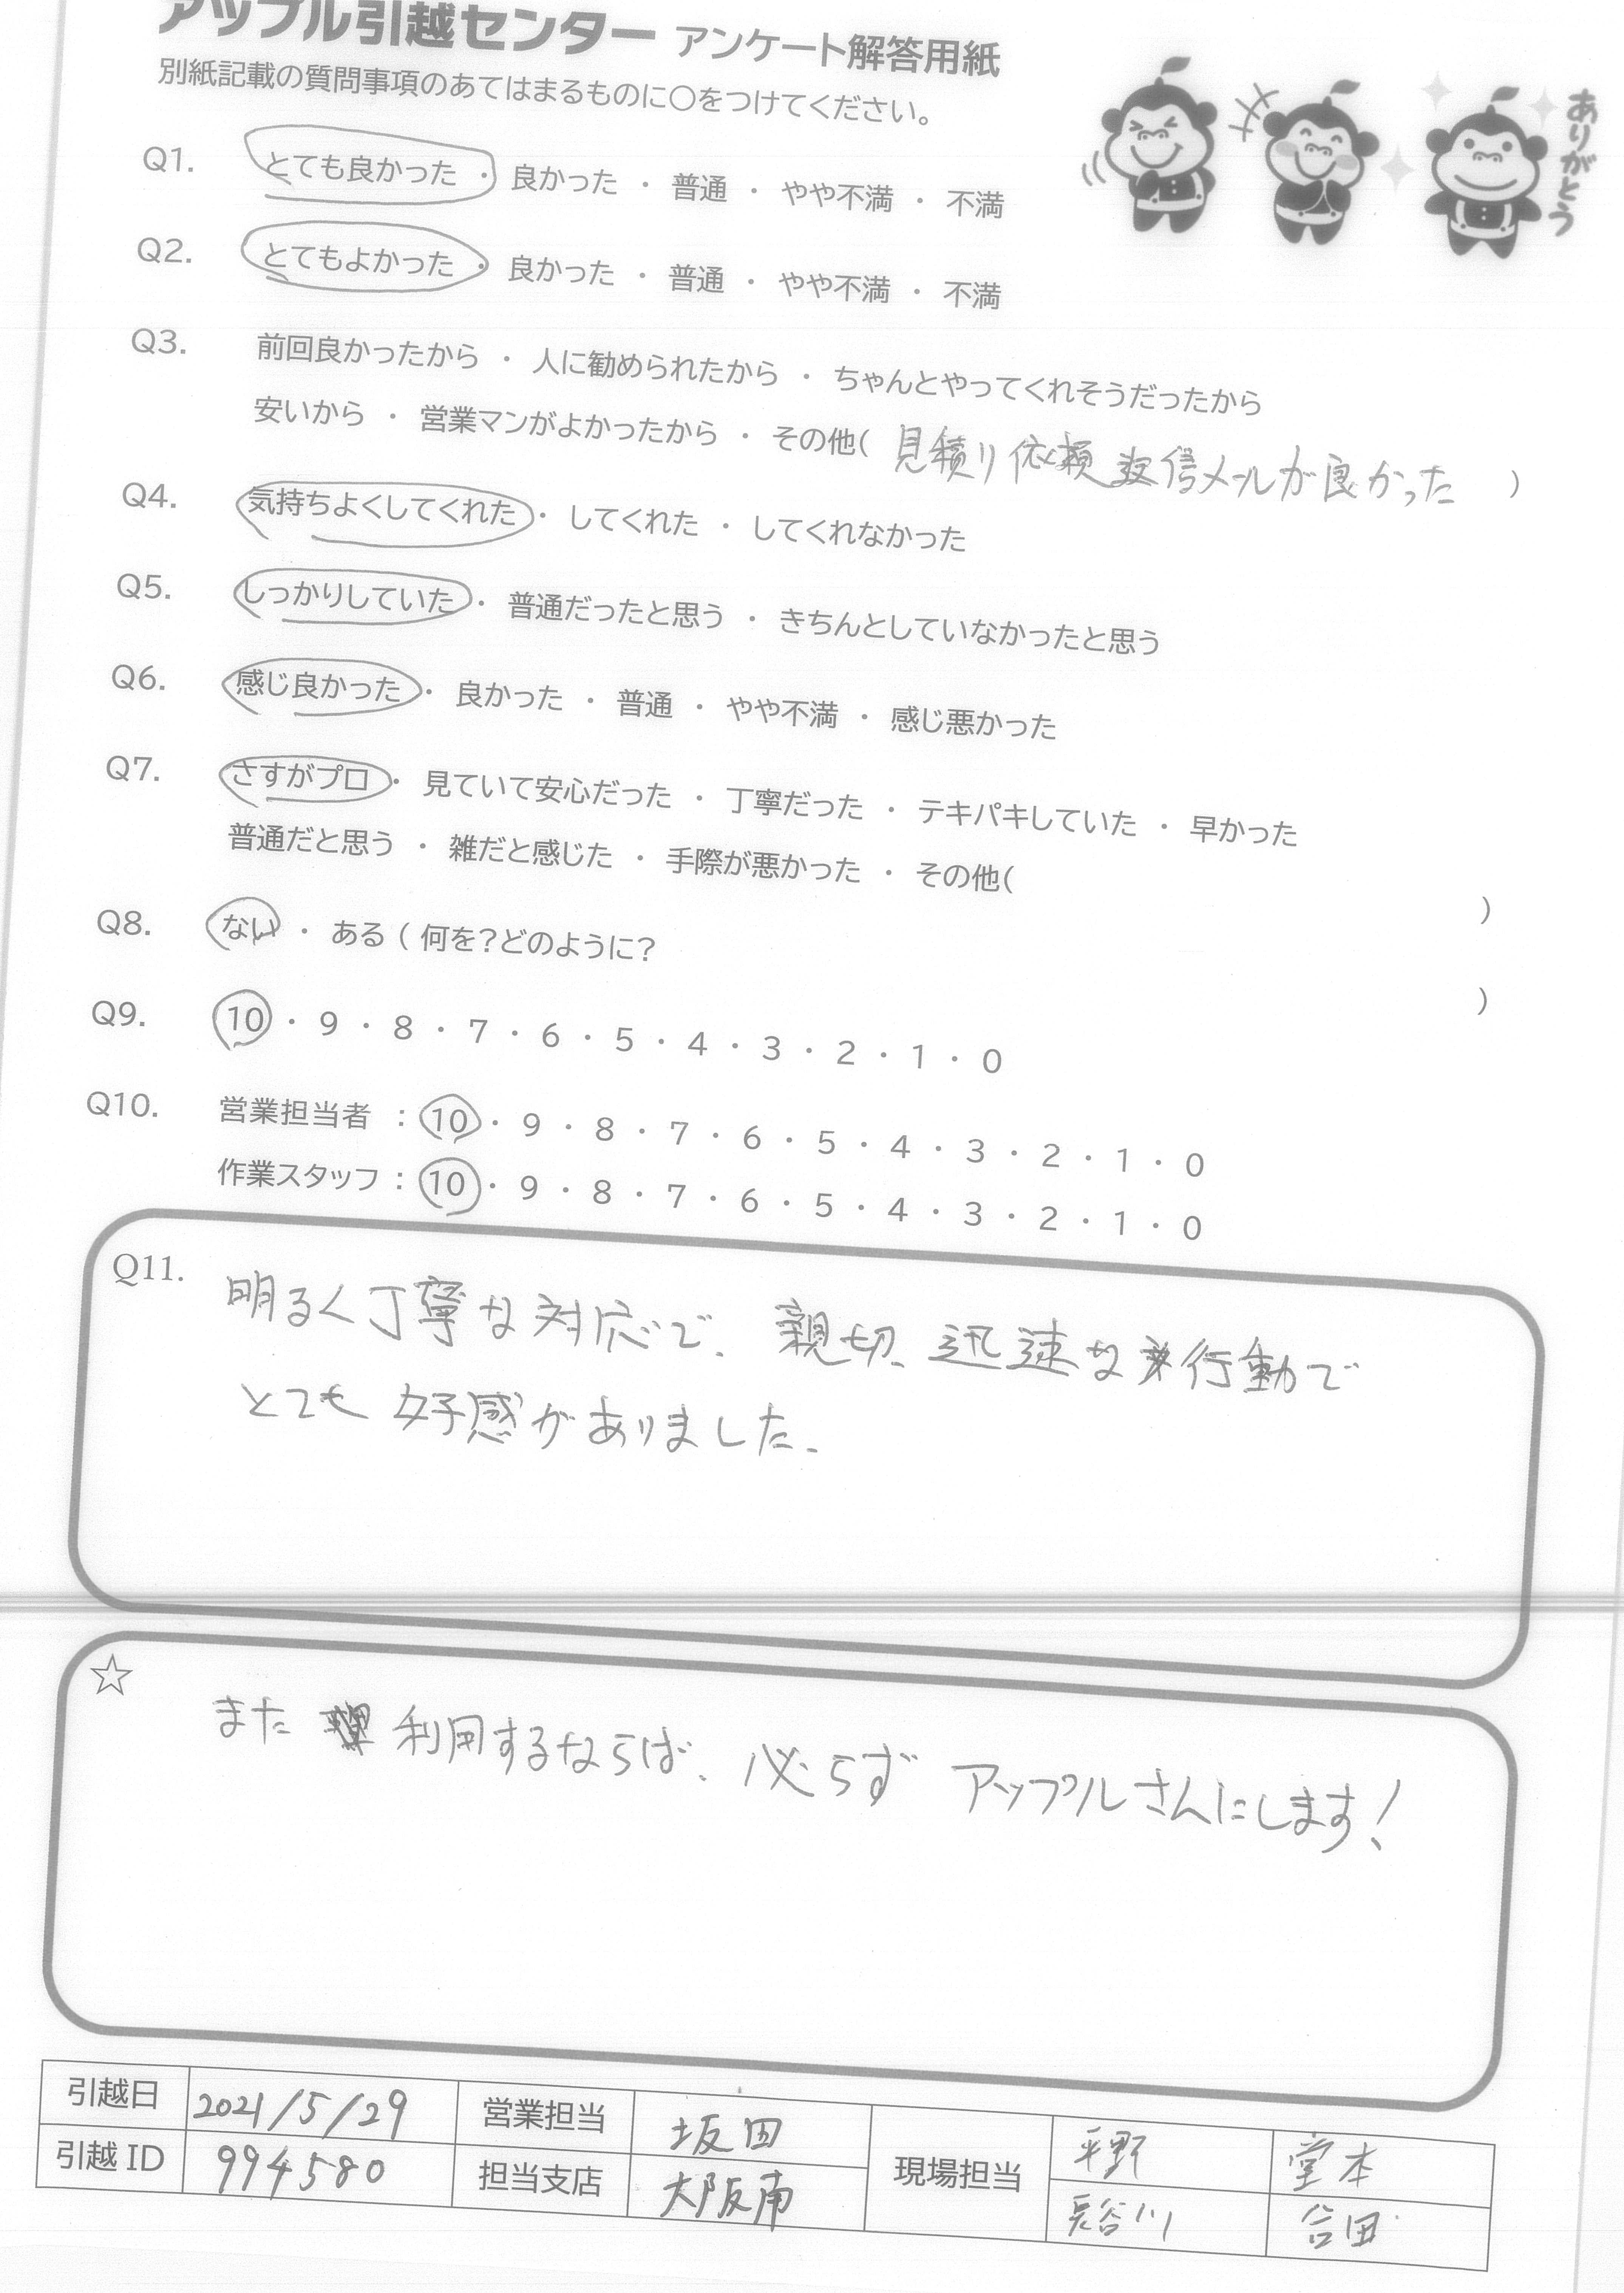 アップル引越センター アンケート解答用紙
別紙記載の質問事項のあてはまるものに○をつけてください。
ありがとう
Q1. とても良かった ・ 良かった ・ 普通 ・ やや不満 ・ 不満
Q2. とてもよかった ・ 良かった ・ 普通 ・ やや不満 ・ 不満
Q3. 前回良かったから ・ 人に勧められたから ・ ちゃんとやってくれそうだったから
安いから ・ 営業マンがよかったから ・ その他( 見積り依頼 返信メールが良かった )
Q4. 気持ちよくしてくれた ・ してくれた ・ してくれなかった
Q5. しっかりしていた ・ 普通だったと思う ・ きちんとしていなかったと思う
Q6. 感じ良かった ・ 良かった ・ 普通 ・ やや不満 ・ 感じ悪かった
Q7. さすがプロ ・ 見ていて安心だった ・ 丁寧だった ・ テキパキしていた ・ 早かった
普通だと思う ・ 雑だと感じた ・ 手際が悪かった ・ その他( )
Q8. ない ・ ある ( 何を?どのように? )
Q9. 10 ・ 9 ・ 8 ・ 7 ・ 6 ・ 5 ・ 4 ・ 3 ・ 2 ・ 1 ・ 0
Q10. 営業担当者 : 10 ・ 9 ・ 8 ・ 7 ・ 6 ・ 5 ・ 4 ・ 3 ・ 2 ・ 1 ・ 0
作業スタッフ : 10 ・ 9 ・ 8 ・ 7 ・ 6 ・ 5 ・ 4 ・ 3 ・ 2 ・ 1 ・ 0
Q11. 明るく丁寧な対応で、親切、迅速な行動で
とても好感がありました。
☆ また 利用するならば、必らず アップルさんにします!
引越日 2021/5/29 営業担当 坂田 現場担当 平野 堂本
引越ID 994580 担当支店 大阪南 長谷川 合田